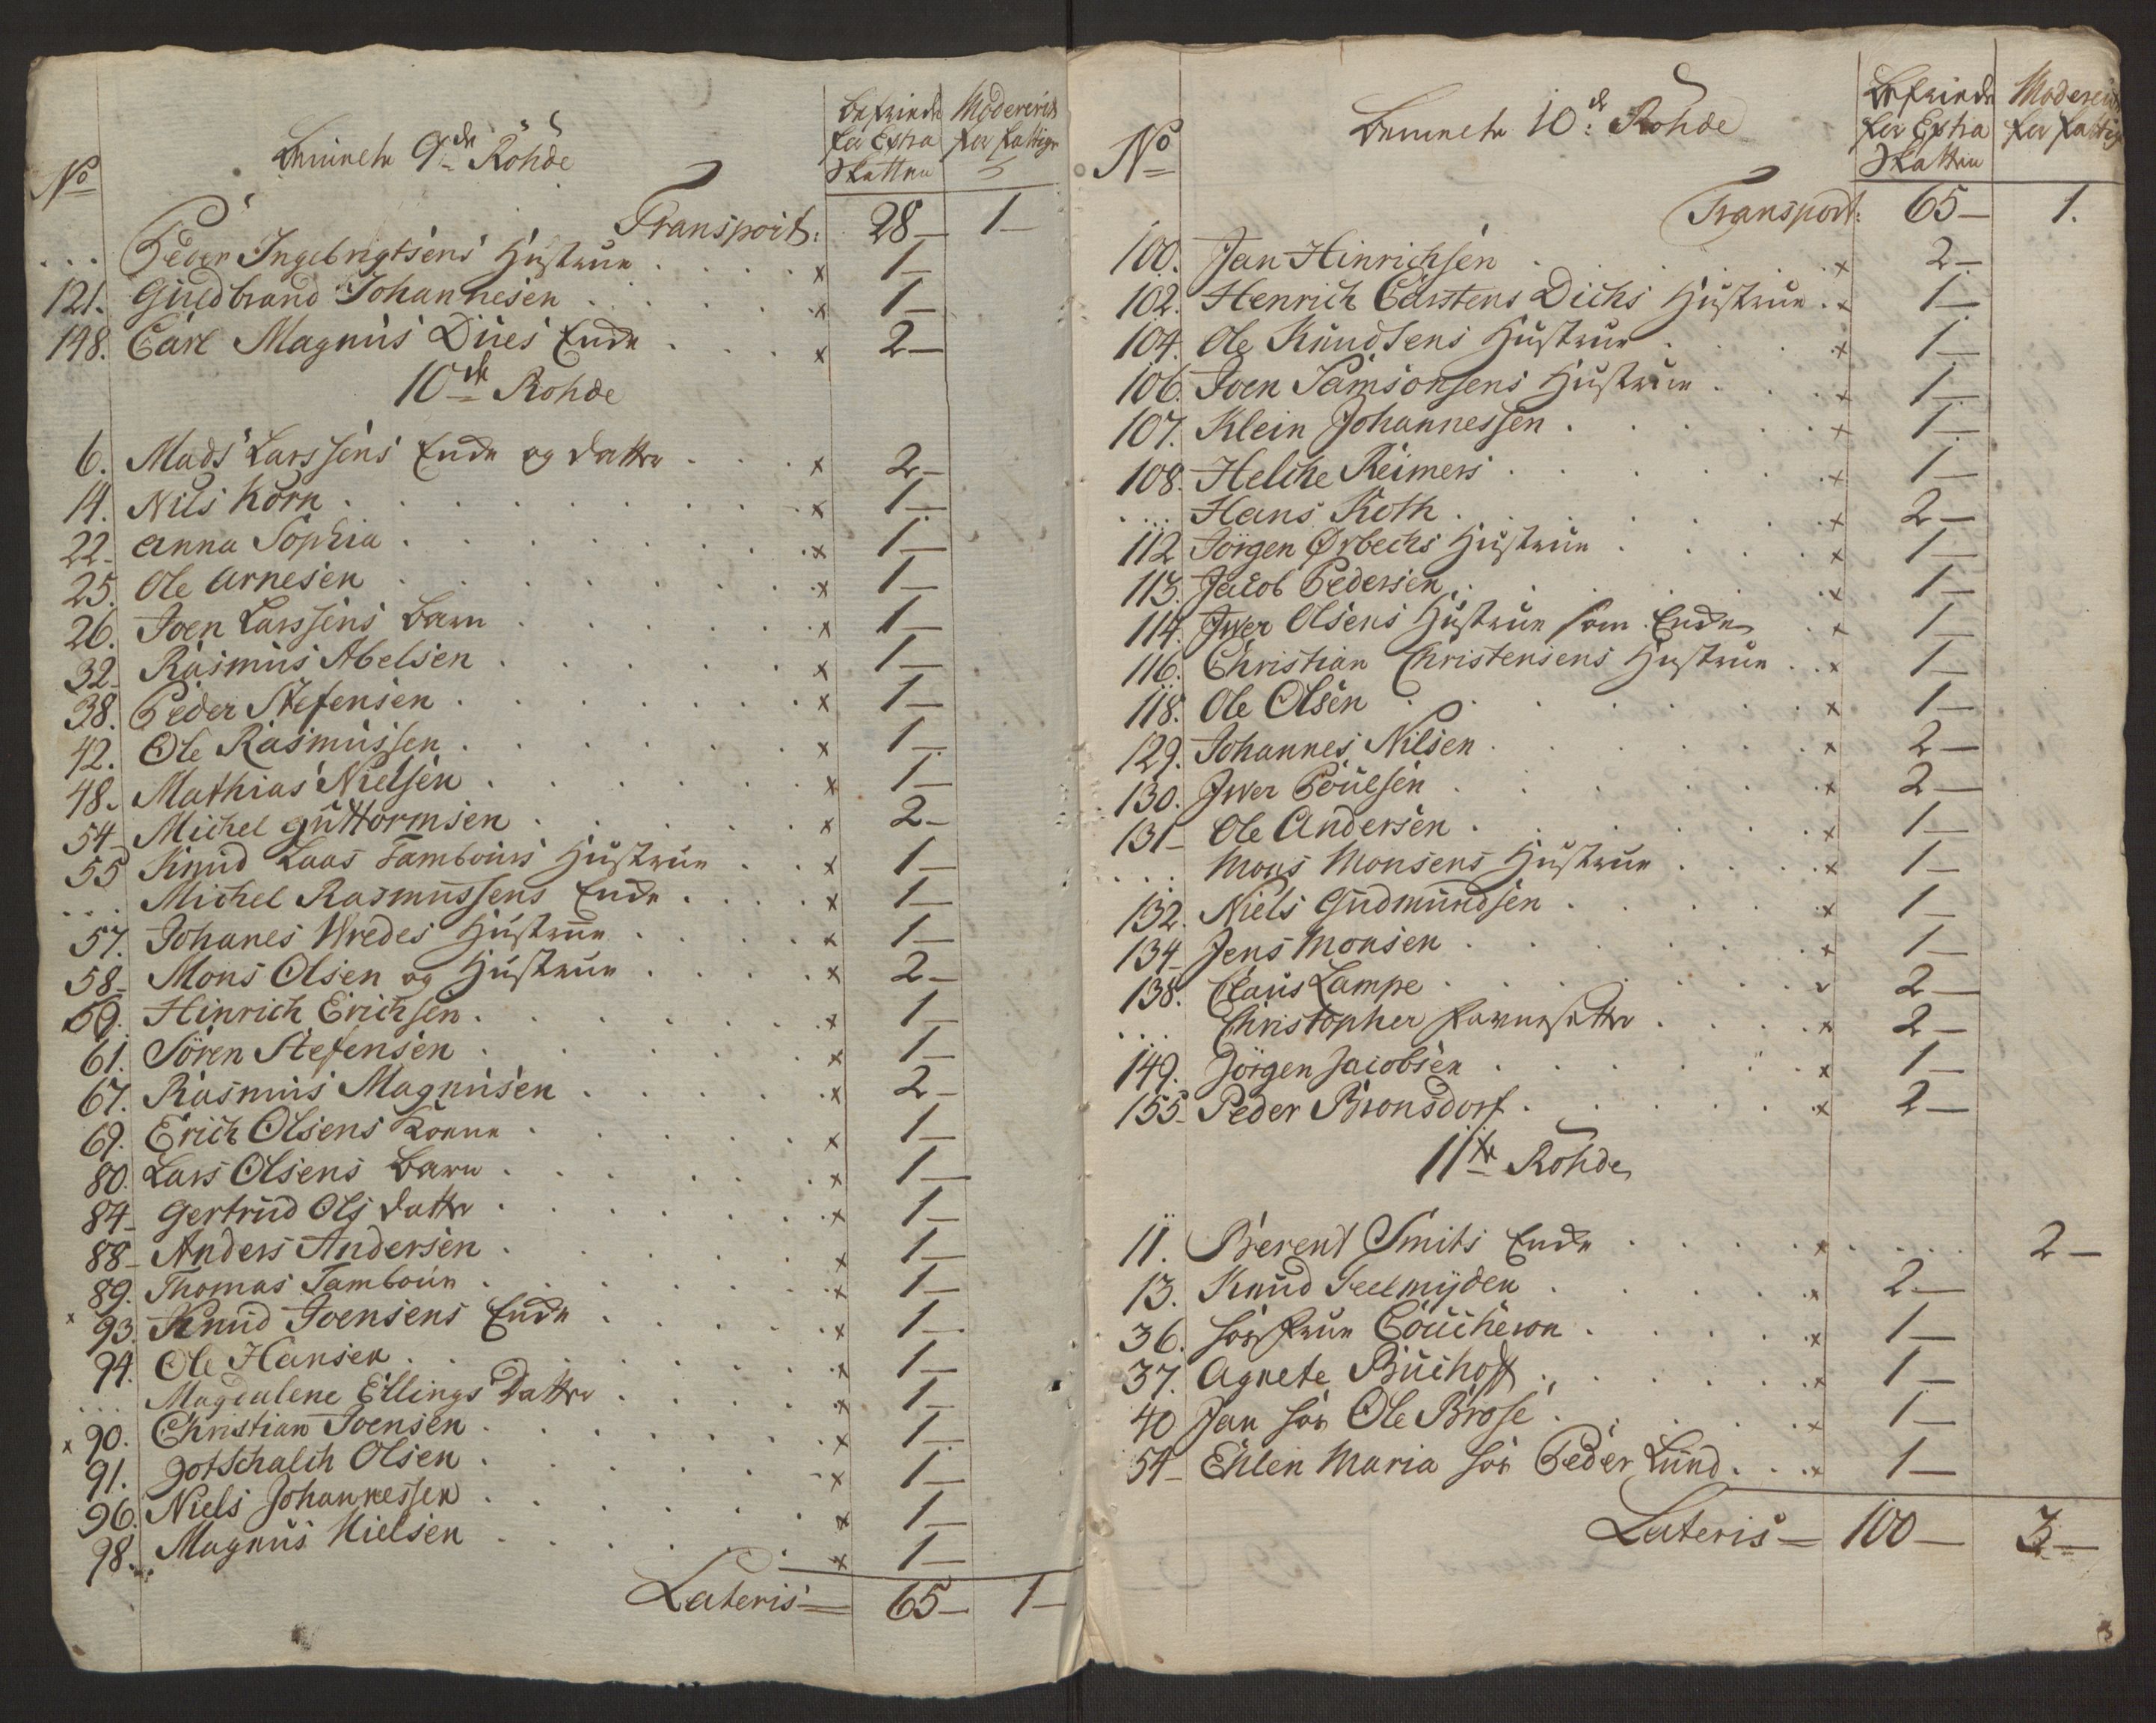 No
bemelte 9de Rohde
Befriede for Extra Skatten
Modererit for fattige
Transport: 28 – 1 –
... Peder Ingebrigtsens Hustrue . . . x 1 –
121. Guldbrand Johannesen . . . x 1 –
148. Carl Magnus Dües Enke . . . x 2 –
10de Rohde
6. Mads Larssens Enke og datter . . . x 2 –
14. Nils Korn . . . x 1 –
22 – Anna Sophia . . . x 1 –
25. Ole Arnesen . . . x 1 –
26. Joen Larssens barn . . . x 1 –
32 – Rasmus Abelsen . . . x 1 –
38. Peder Stefensen . . . x 1 –
42. Ole Rasmussen . . . x 1 –
48. Mathias Nielsen . . . x 1 –
54 Michel Guttormsen . . . x 2 –
55 Knud Laas Tambours Hustrue . . . x 1 –
... Michel Rasmussens Enke . . . x 1 –
57. Johanes Wredes Hustrue . . . x 1 –
58 – Mons Olsen og Hustrue . . . x 2 –
59. Hinrich Erichsen . . . x 1 –
61. Sören Stefensen . . . x 1 –
67. Rasmus Magnusen . . . x 2 –
69. Erich Olsens Kone . . . x 1 –
80. Lars Olsens barn . . . x 1 –
84 – Gertrud Ols datter . . . x 1 –
88 – Anders Andersen . . . x 1 –
89. Thomas Tambour . . . x 1 –
x 93. Knud Joensens Enke . . . x 1 –
94. Ole Hansen . . . x 1 –
... Magdalene Ellings Datter . . . x 1 –
x 90. Christian Joensen . . . x 1 –
91. Gotschalch Olsen . . . x 1 –
96. Niels Johannessen . . . x 1 –
98. Magnus Nielsen . . . x 1 –
Lateris = 65 – 1 –
No
bemelte 10de Rohde
Befriede for Extra Skatten
Modererit for fattig
Transport: 65 – 1.
100. Jan Hinrichsen . . . x 2 –
102. Henrich Carstens Dichs Hustrue . x 1 –
104. Ole Knudsens Hustrue . . . x 1 –
106. Joen Samsonsens Hustrue . . . x 1 –
107. Klein Johannessen . . . x 1 –
108. Helche Reimers . . . x 1 –
.... Hans Koth . . . x 2 –
112 Jörgen Ørbechs Hustrue . . . x 1 –
113. Jacob Pedersen . . . x 1 –
114. Jwer Olsens Hustrue som Enke . . x 1 –
116. Christian Christensens Hustrue . . x 1 –
118. Ole Olsen . . . x 1 –
129. Johannes Nilsen . . . x 2 –
130. Jwer Poulsen . . . x 2 –
131 – Ole Andersen . . . x 1 –
.... Mons Monsens Hustrue . . . x 1 –
132. Niels Gudmundsen . . . x 1 –
134 – Jens Monsen . . . x 1 –
138. Claus Lampe . . . v 2 –
.... Christopher . . . x 2 –
149. Jörgen Jacobsen . . . x 1 –
155 – Peder Bronsdorf . . . x 2 –
11te Rohde
11. Berent Smits Enke . . . x . . . 2 –
13. Knud Geelmÿden . . . x 2 –
36. hos frue Coucheron . . . x 1 –
37. Agnete Buchoff . . . x 1 –
40 Jan hos Ole Brose . . . x 1 –
54 – Ehlen Maria hos Peder Lund . . . x 1 –
Lateris = 100 – 3 –